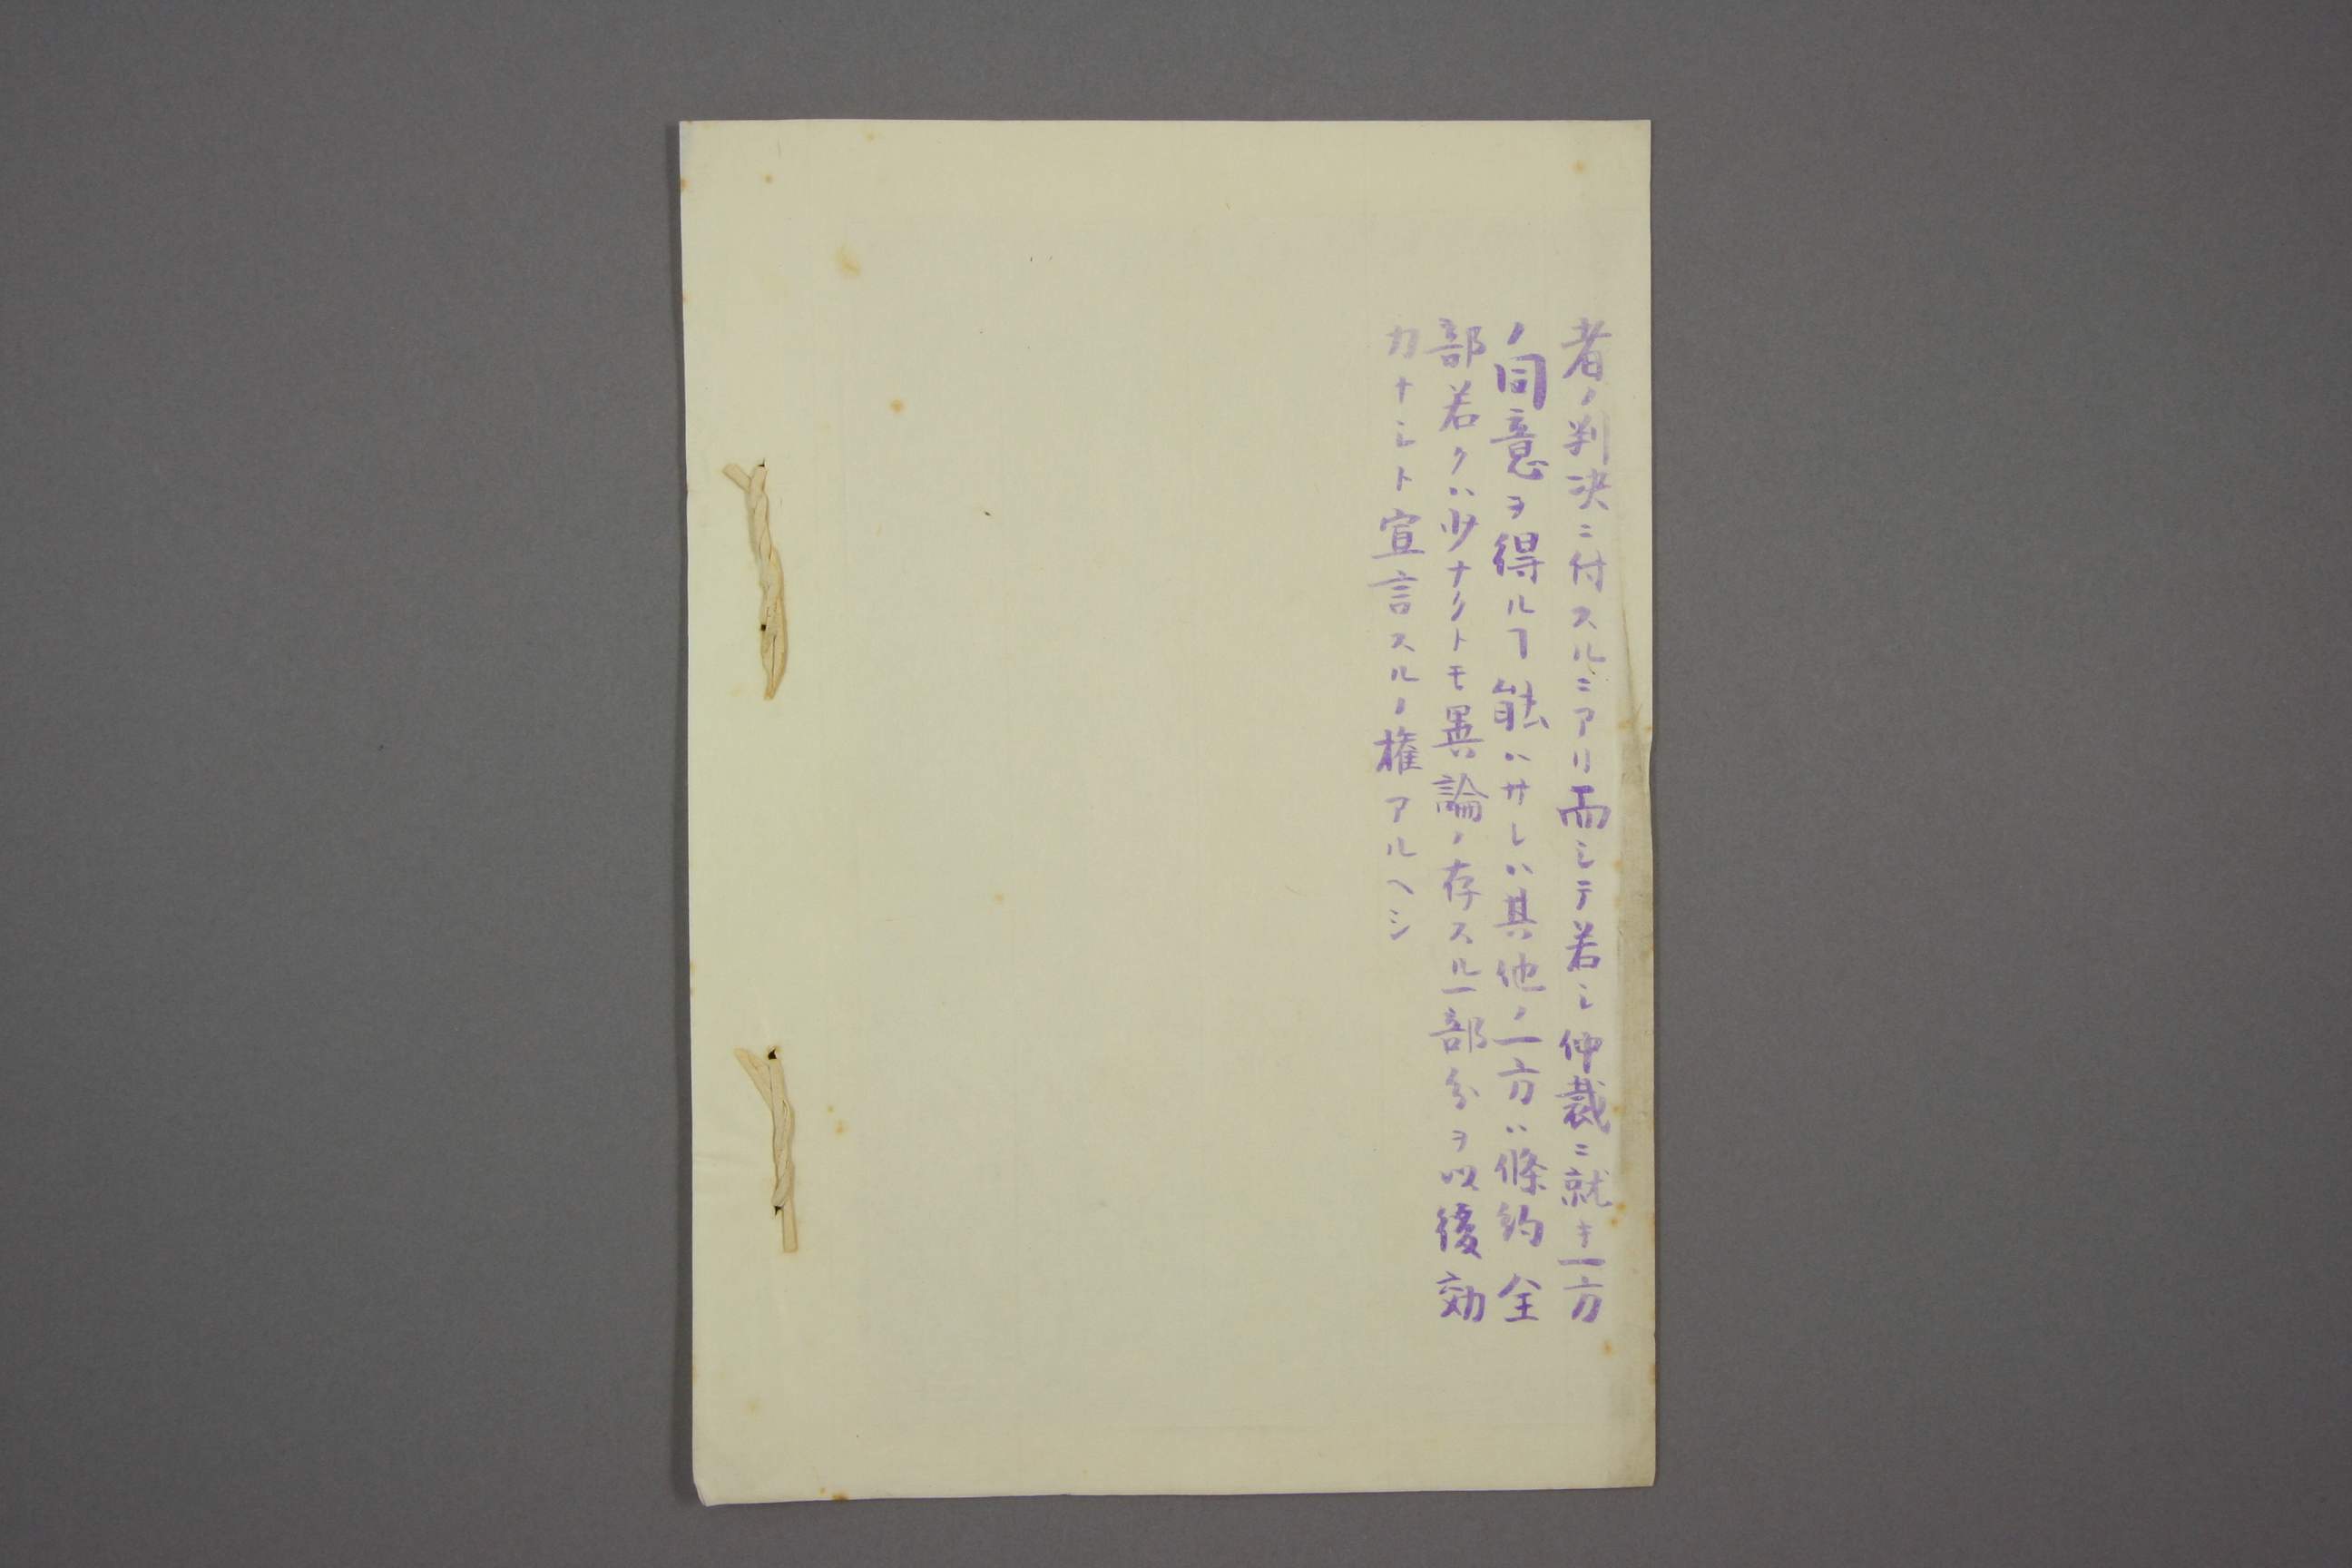 者ノ判決ニ付スルニアリ而シテ若シ仲裁ニ就キ一方
ノ同意ヲ得ルヿ能ハサレハ其他ノ一方ハ條約全
部若クハ少ナクトモ異論ノ存スル一部分ヲ以後効
力ナシト宣言スルノ権アルヘシ